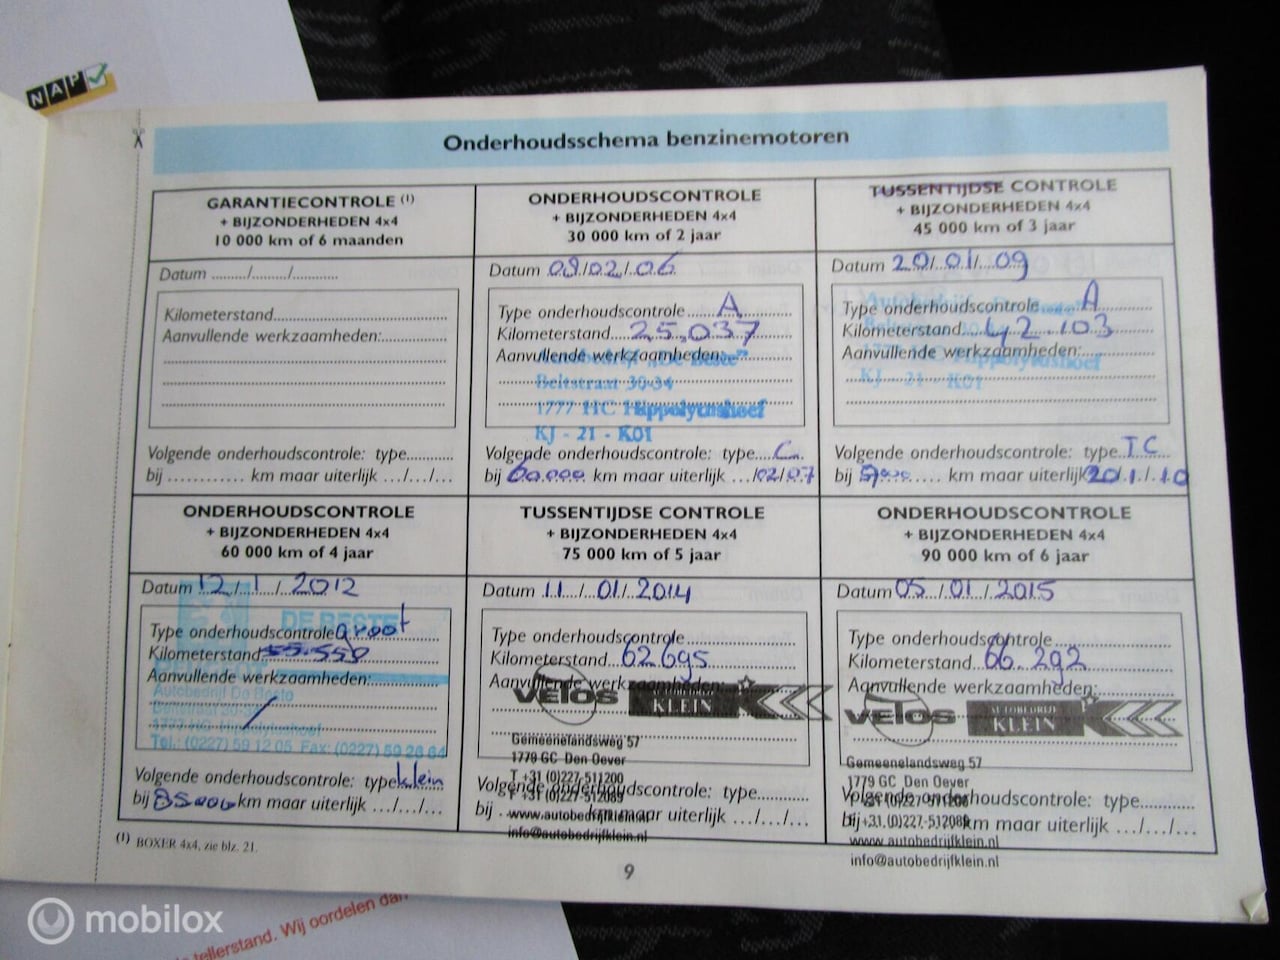 NAP
Onderhoudsschema benzinemotoren
GARANTIECONTROLE (1)
+ BIJZONDERHEDEN 4x4
10 000 km of 6 maanden
Datum ......../......../...........
Kilometerstand
Aanvullende werkzaamheden:
Volgende onderhoudscontrole: type
bij ............ km maar uiterlijk .../.../...
ONDERHOUDSCONTROLE
+ BIJZONDERHEDEN 4x4
30 000 km of 2 jaar
Datum 08/02/06
Type onderhoudscontrole A
Kilometerstand 25.037
Aanvullende werkzaamheden:
Autobedrijf „De Beste”
Beltstraat 30-34
1777 HC Hippolytushoef
KJ - 21 - K01
Volgende onderhoudscontrole: type C
bij 60.000 km maar uiterlijk .../02/07
TUSSENTIJDSE CONTROLE
+ BIJZONDERHEDEN 4x4
45 000 km of 3 jaar
Datum 20/01/09
Type onderhoudscontrole A
Kilometerstand 42.103
Aanvullende werkzaamheden:
1777 HC Hippolytushoef
KJ - 21 - K01
Volgende onderhoudscontrole: type TC
bij km maar uiterlijk 20/1/10
ONDERHOUDSCONTROLE
+ BIJZONDERHEDEN 4x4
60 000 km of 4 jaar
Datum 12/1/2012
DE BESTE
Type onderhoudscontrole groot
Kilometerstand 55.550
Aanvullende werkzaamheden:
PEUGEOT
Autobedrijf De Beste
Beltstraat 30-34
1777 HC Hippolytushoef
Tel.: (0227) 59 12 05 Fax: (0227) 59 26 64
Volgende onderhoudscontrole: type klein
bij 85000 km maar uiterlijk .../.../...
TUSSENTIJDSE CONTROLE
+ BIJZONDERHEDEN 4x4
75 000 km of 5 jaar
Datum 11/01/2014
Type onderhoudscontrole
Kilometerstand 62695
Aanvullende werkzaamheden:
VELOS AUTOBEDRIJF KLEIN
Gemeenelandsweg 57
1779 GC Den Oever
T +31 (0)227-511200
F +31 (0)227-512089
www.autobedrijfklein.nl
info@autobedrijfklein.nl
Volgende onderhoudscontrole: type
bij km maar uiterlijk .../.../...
ONDERHOUDSCONTROLE
+ BIJZONDERHEDEN 4x4
90 000 km of 6 jaar
Datum 05/01/2015
Type onderhoudscontrole
Kilometerstand 66.292
Aanvullende werkzaamheden:
VELOS AUTOBEDRIJF KLEIN
Gemeenelandsweg 57
1779 GC Den Oever
T +31 (0)227-511200
F +31 (0)227-512089
www.autobedrijfklein.nl
info@autobedrijfklein.nl
Volgende onderhoudscontrole: type
bij km maar uiterlijk .../.../...
(1) BOXER 4x4, zie blz. 21.
9
mobilox
tellerstand. Wij oordelen dan